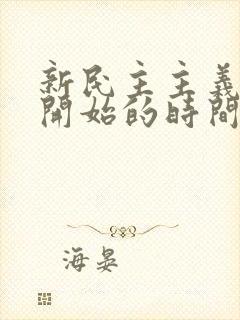 新民主主義
開始的時間
海晏